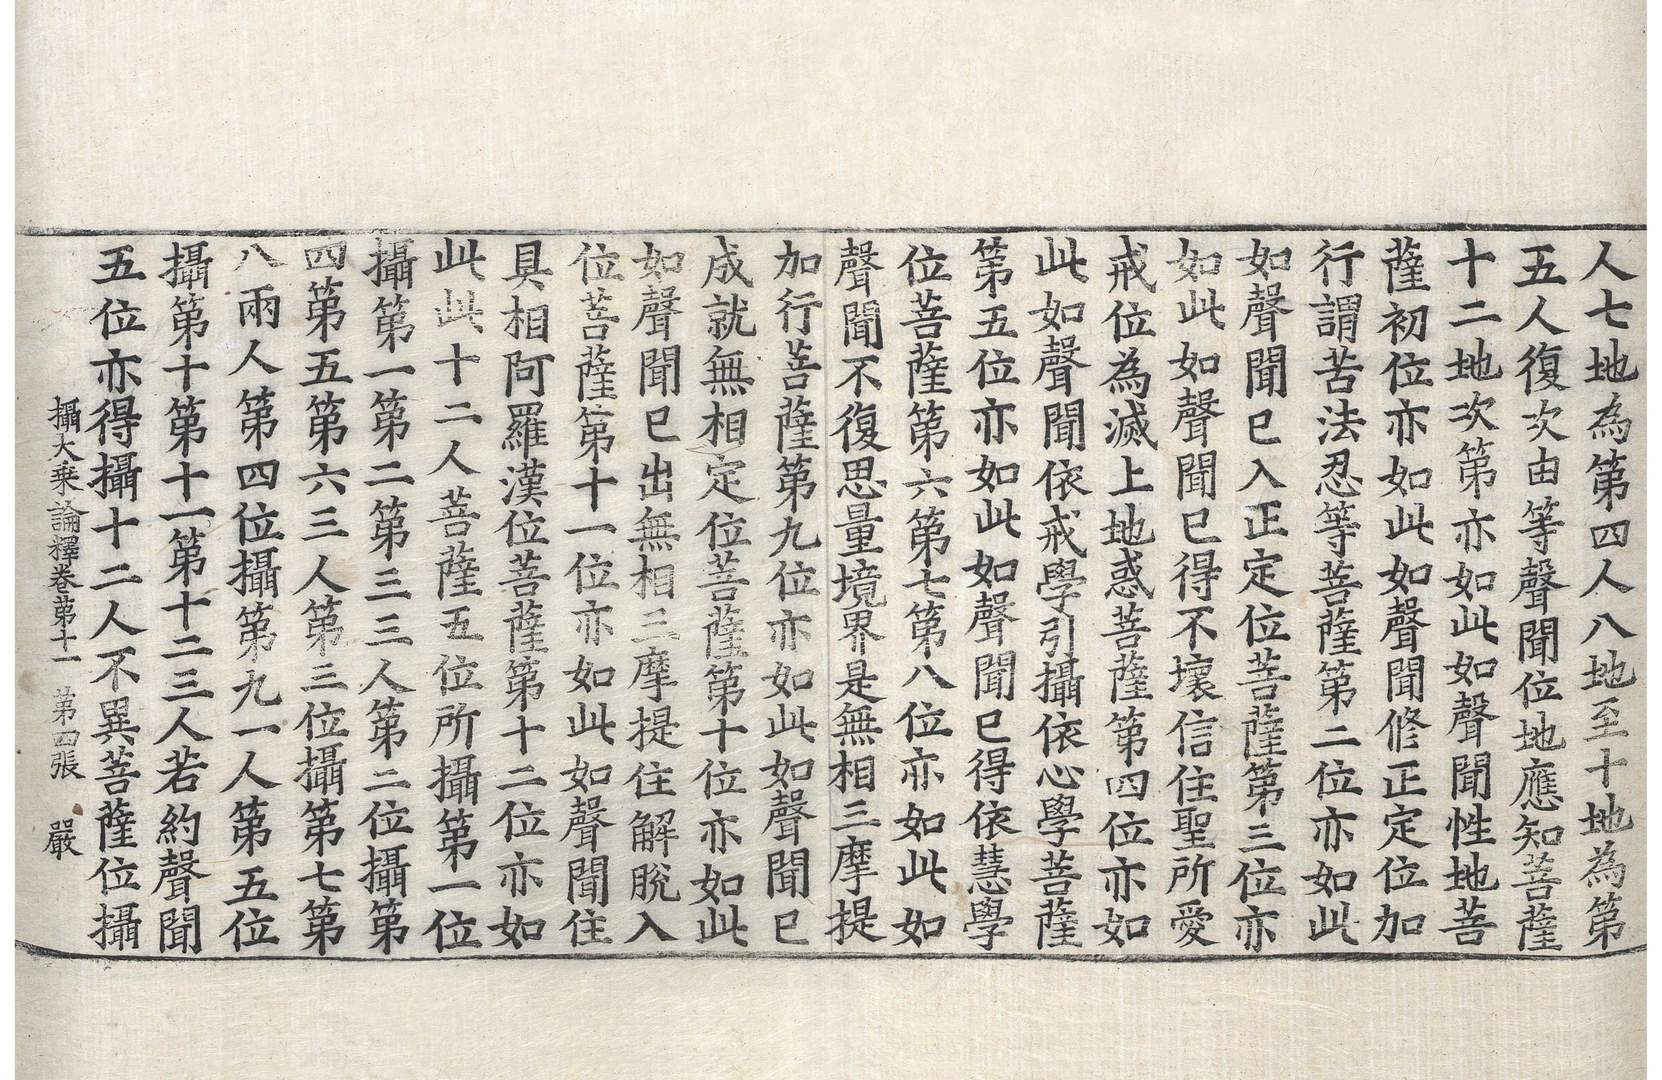 人七地為第四人八地至十地為第
五人復次由等聲聞位地應知菩薩
十二地次第亦如此如聲聞性地菩
薩初位亦如此如聲聞修正定位加
行謂苦法忍等菩薩第二位亦如此
如聲聞已入正定位菩薩第三位亦
如此如聲聞已得不壞信住聖所愛
戒位為滅上地惑菩薩第四位亦如
此如聲聞依戒學引攝依心學菩薩
第五位亦如此如聲聞已得依慧學
位菩薩第六第七第八位亦如此如
聲聞不復思量境界是無相三摩提
加行菩薩第九位亦如此如聲聞已
成就無相定位菩薩第十位亦如此
如聲聞已出無相三摩提住解脫入
位菩薩第十一位亦如此如聲聞住
具相阿羅漢位菩薩第十二位亦如
此此十二人菩薩五位所攝第一位
攝第一第二第三三人第二位攝第
四第五第六三人第三位攝第七第
八兩人第四位攝第九一人第五位
攝第十第十一第十二三人若約聲聞
五位亦得攝十二人不異菩薩位攝
攝大乘論釋卷苐十一 苐四張 嚴